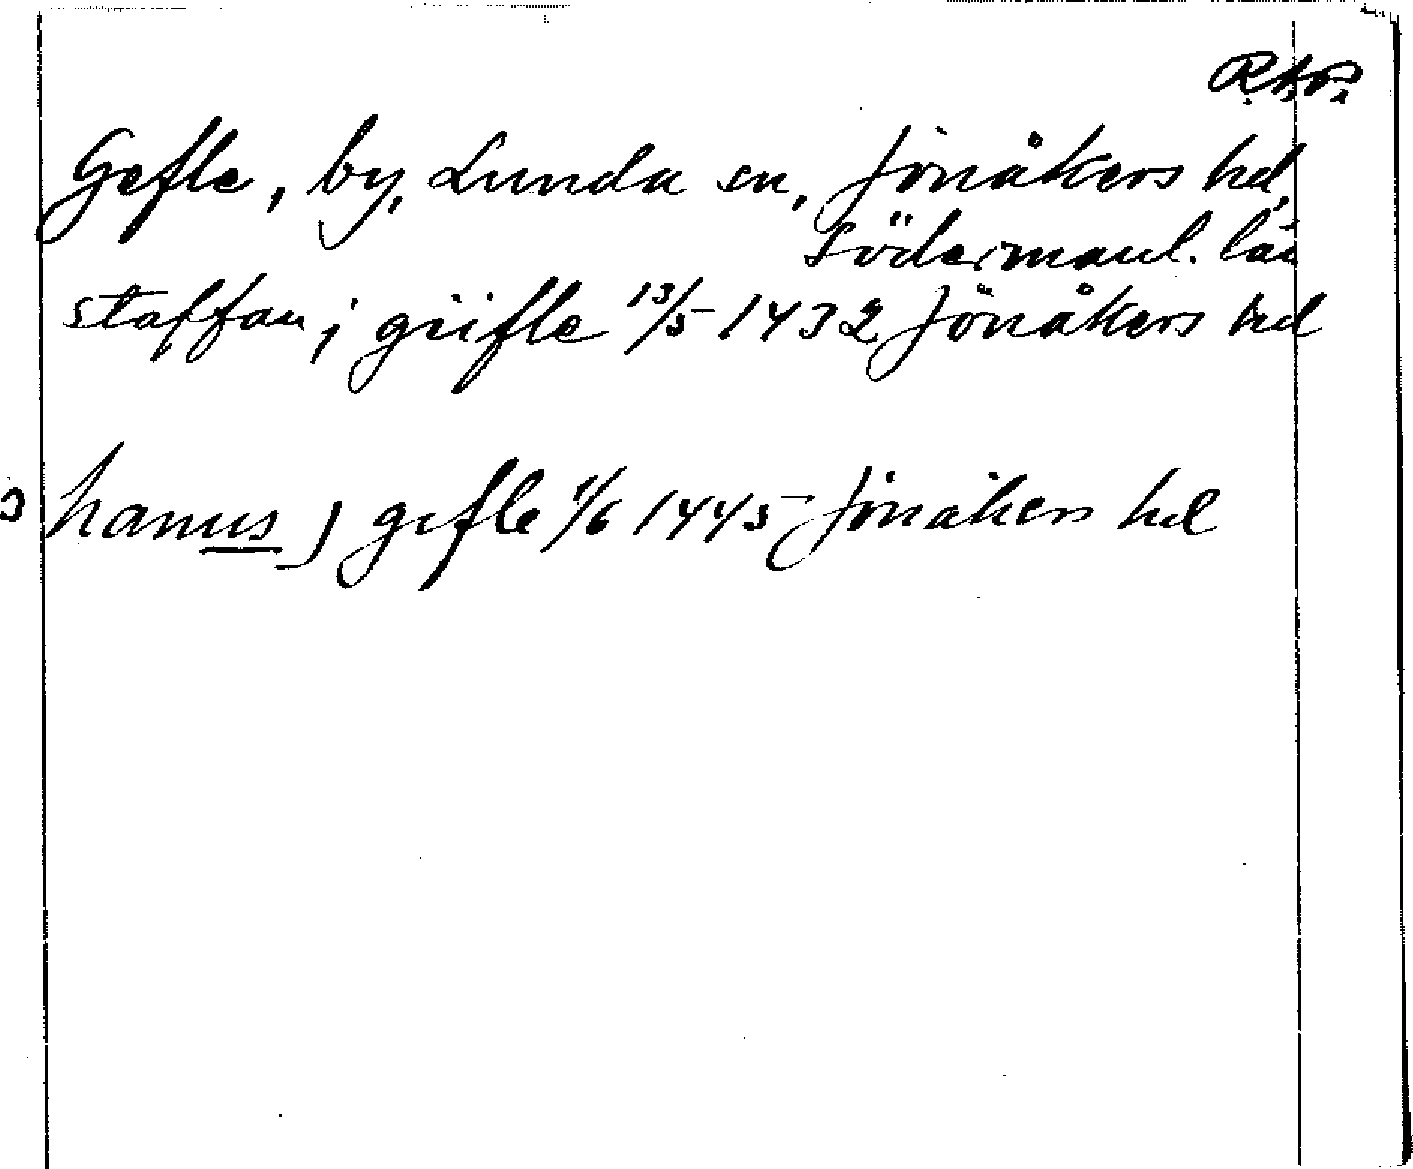 R.A.P.
Gefle, by, Lunda sn, Jönåkers hd,
Södermanl. län
staffan j giifle 13/5 1432 Jönåkers hd
hanus j gefle 1/6 1445 Jönåkers hd